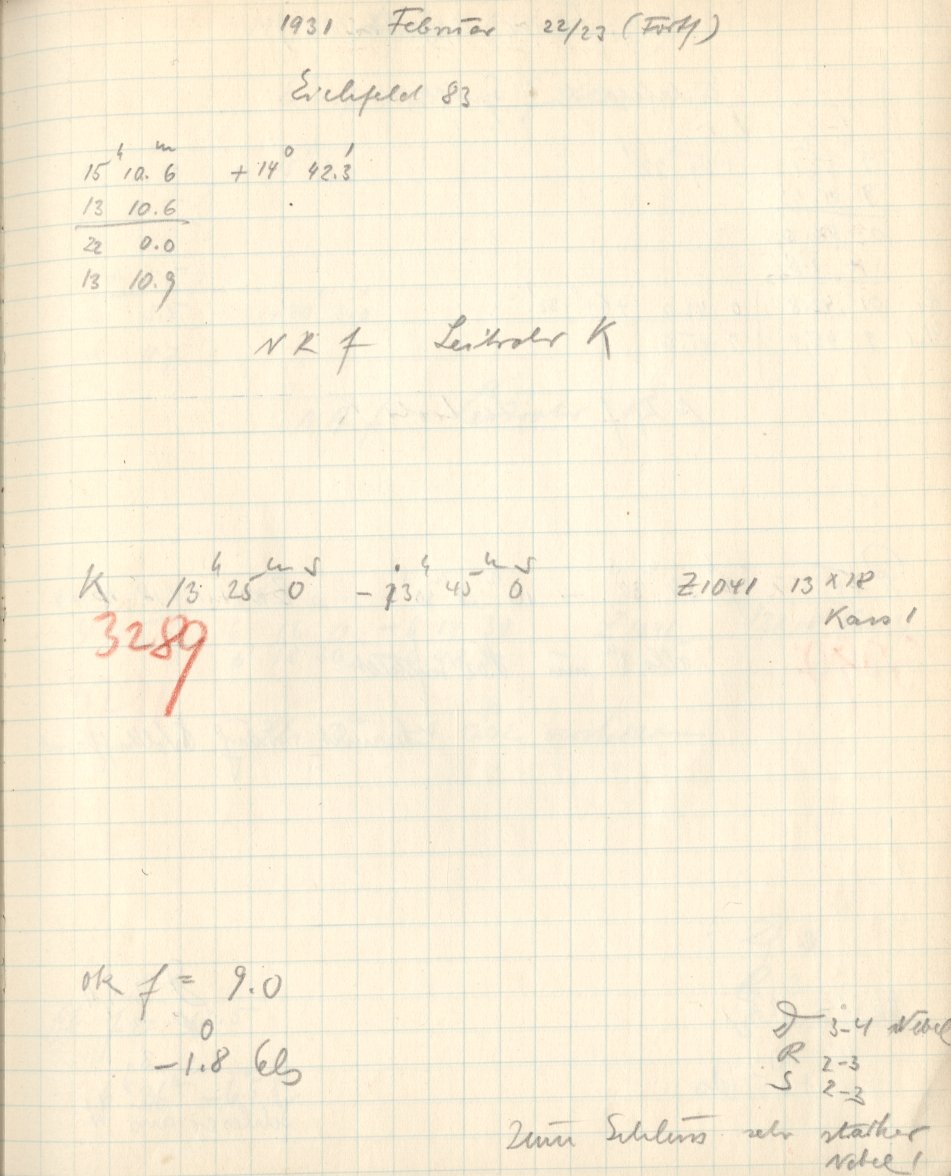 1931 Februar 22/23 (Forts)
Eichfeld 83
15 h 10.6 m + 14° 42.3'
13 10.6
22 0.0
13 10.9
NR f Leitrohr K
K 13 h 25 m 0 s - 23 h 45 m 0 s Z1041 13 x 18
Kass 1
3289
ok f = 9.0
-1.8°
D 3-4 Nebel
R 2-3
S 2-3
Zum Schluss sehr starker
Nebel!